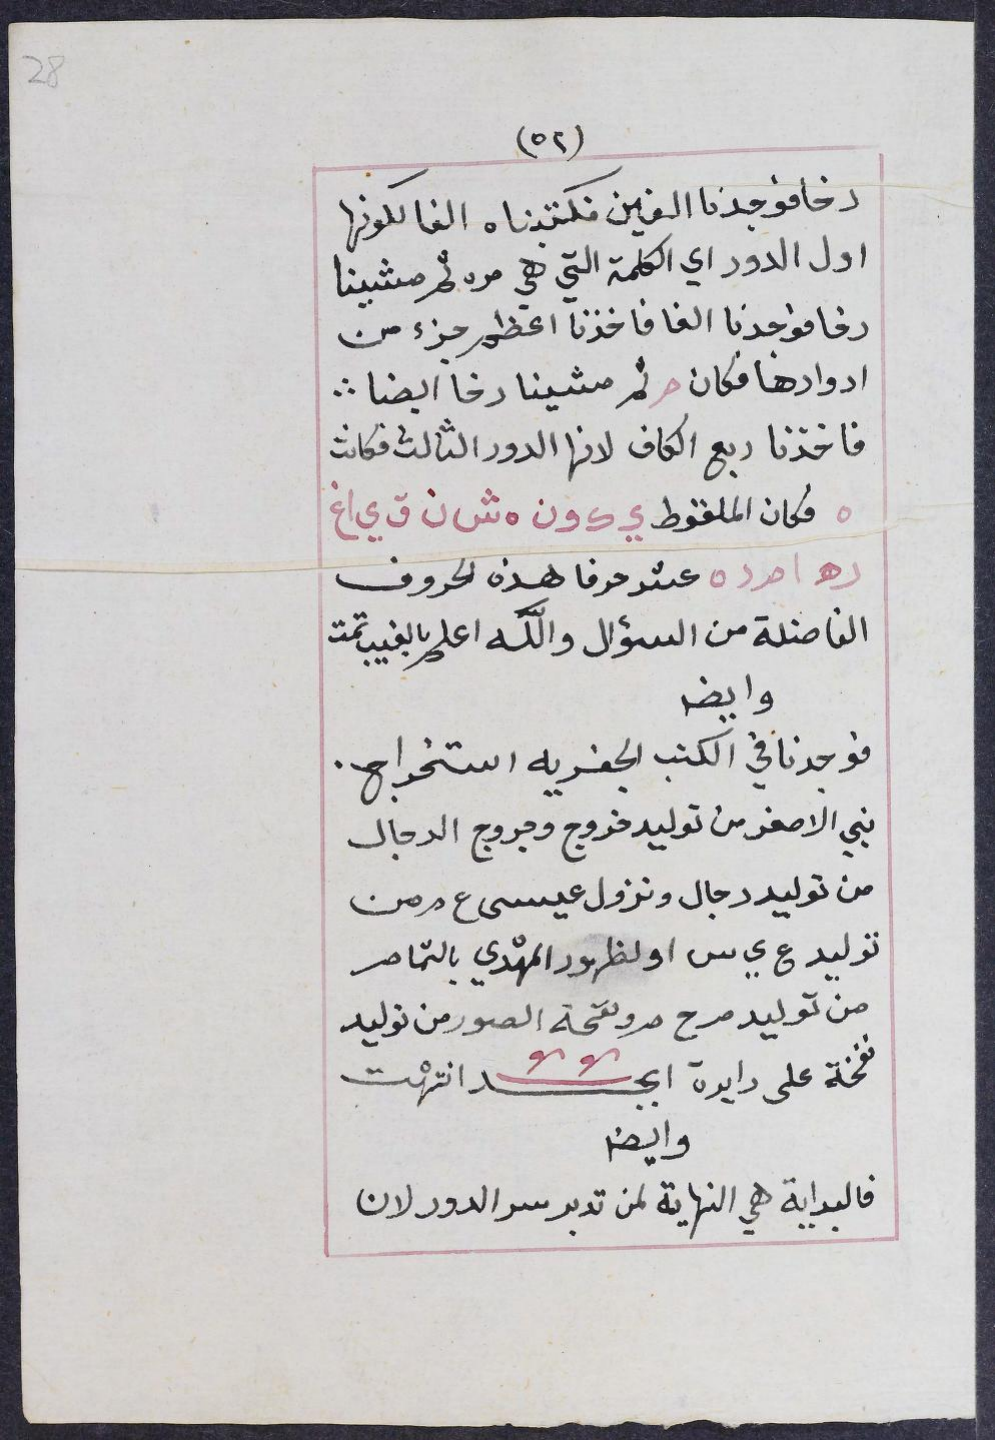 28
(٥٢)
دخا فوجدنا الغين فكتبناه الفا لكونها
اول الدور اي الكلمة التي هي مره ثم مشينا
دخا فوجدنا الفا فاخذنا اعظم جزء من
ادوارها فكان م ثم مشينا دخا ايضا ∴
فاخذنا ربع الكاف لانها الدور الثالث فكانت
ه فكان الملفوظ ي ك و ن ه ش ن ق ي اغ
ده ا م ر د ه عشر حرفا هذه الحروف
الفاضلة من السؤال والله اعلم بالغيب تمت
وايضا
فوجدنا في الكتب الجفريه استخراج
بني الاصفر من توليد خروج وجروج الدجال
من توليد دجال ونزول عيسى ع م من
توليد ع ي س ا ولظهور المهدي بالتمام
من توليد م ح م ونفخة الصور من توليد
نفخة على دايرة ابجد انتهت
وايضا
فالبداية هي النهاية لمن تدبر سر الدور لان